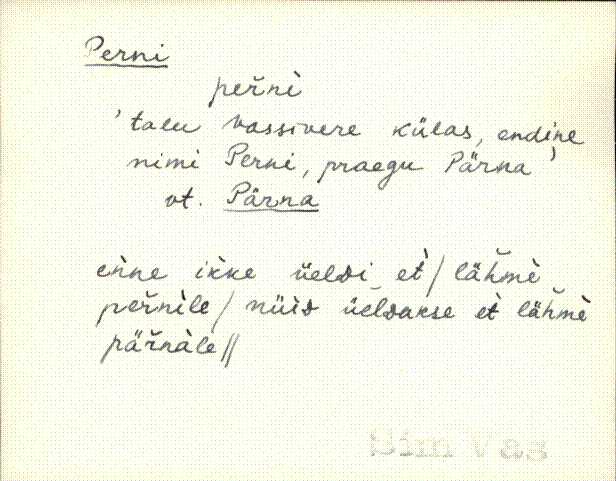 Perni
per̆nì
'talu Vassivere külas, endine
nimi Perni, praegu Pärna'
vt. Pärna
enne ikke üeldi et̀ / läh̆mè
per̆nìle / nüid üeldakse et̀ läh̆mè
pär̆nàle //
Sim Vas